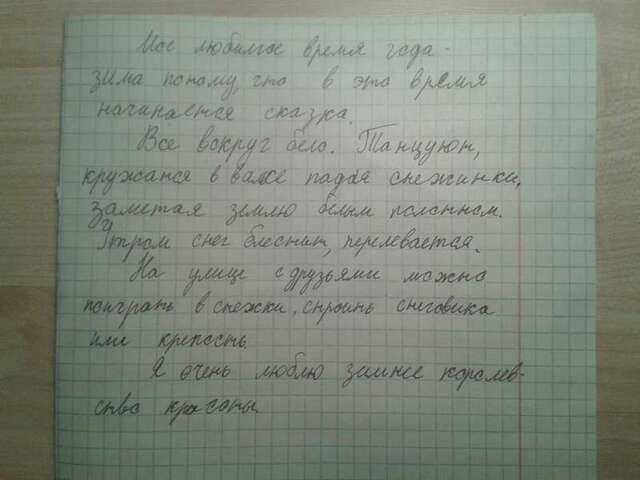 Мое любимое время года -
зима потому, что в это время
начинается сказка.
Все вокруг бело. Танцуют,
кружатся в вальсе падая снежинки,
заметая землю белым полотном.
Утром снег блестит, переливается.
На улице с друзьями можно
поиграть в снежки, строить снеговика
или крепость.
Я очень люблю зимнее королев-
ство красоты.